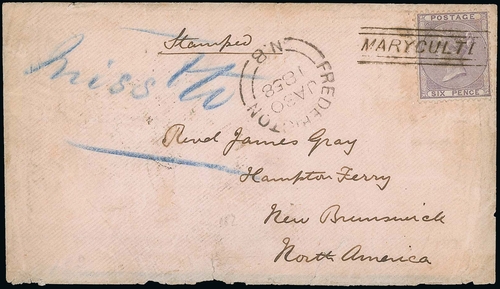 Stamped
POSTAGE
SIX PENCE
MARYCULTI
FREDERICTON
N.B
JA30
1858
Revd James Gray
Hampton Ferry
New Brunswick
North America